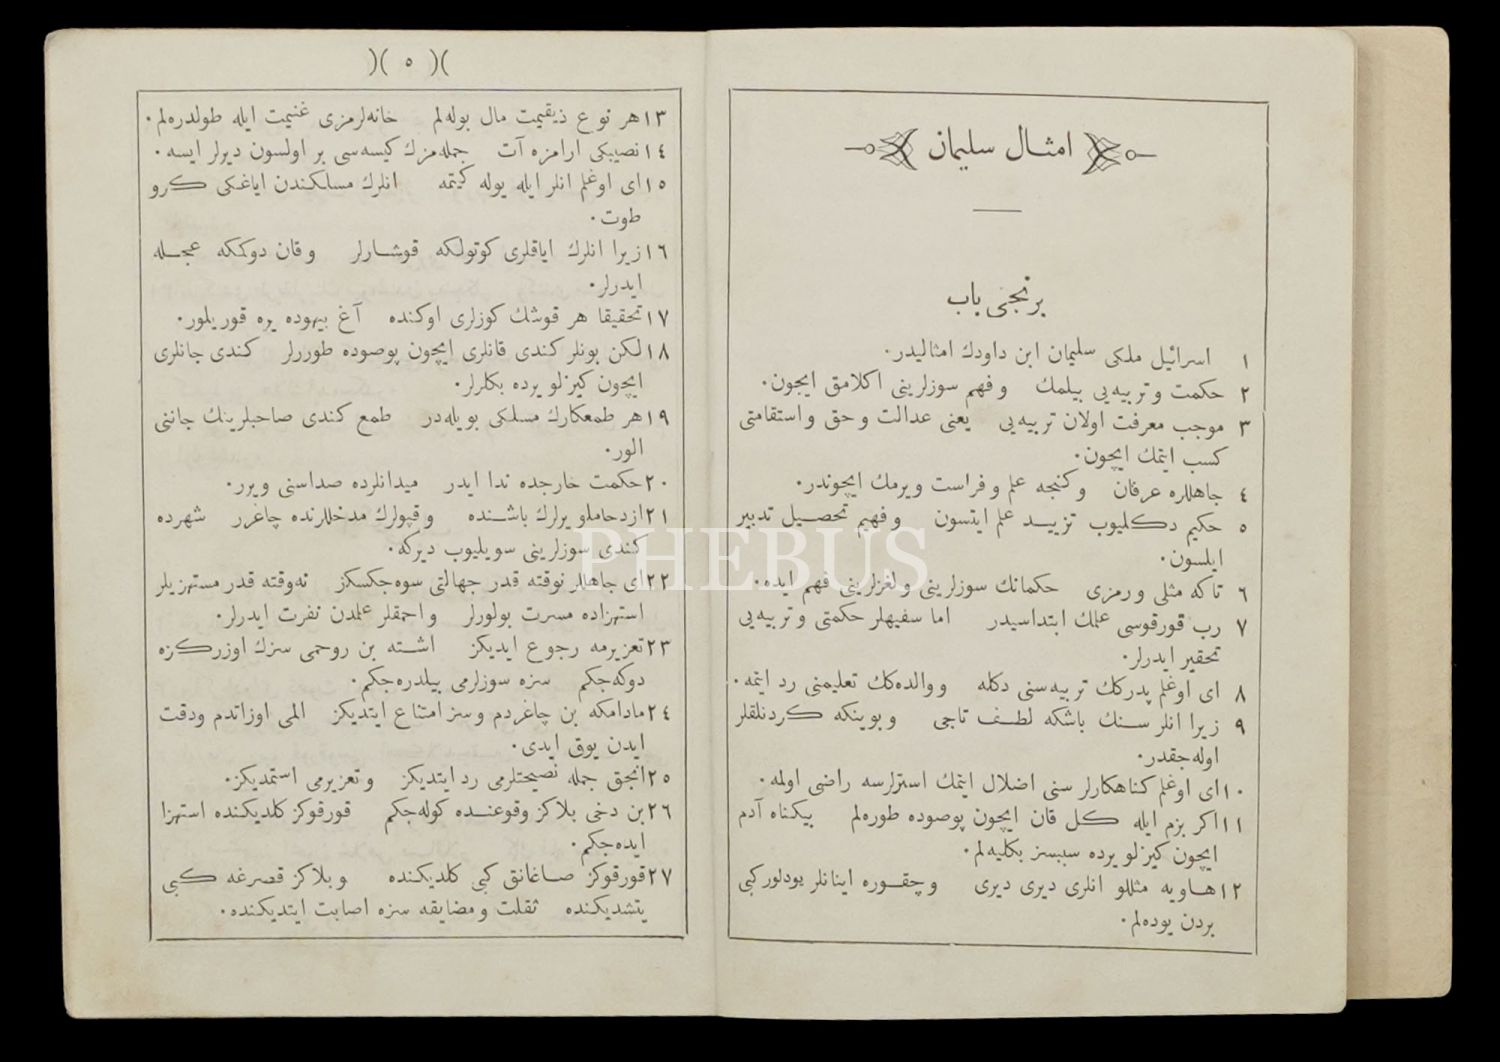 امثال سلیمان
برنجی باب
١ اسرائیل ملکی سلیمان ابن داودك امثالیدر.
٢ حکمت و تربیه‌یی بیلمك و فهم سوزلرینی اکلامق ایچون.
٣ موجب معرفت اولان تربیه‌یی یعنی عدالت و حق و استقامتی
کسب ایتمك ایچون.
٤ جاهللره عرفان و کنجه علم و فراست ویرمك ایچوندر.
٥ حکیم دکلیوب تزیید علم ایتسون و فهیم تحصیل تدبیر
ایلسون.
٦ تاکه مثلی و رمزی حکمانك سوزلرینی و لغزلرینی فهم ایده.
٧ رب قورقوسی علمك ابتداسیدر اما سفیهلر حکمتی و تربیه‌یی
تحقیر ایدرلر.
٨ ای اوغلم پدرکك تربیه‌سنی دکله و والده‌کك تعلیمنی رد ایتمه.
٩ زیرا انلر سنك باشکه لطف تاجی و بوینکه کردنلقلر
اوله‌جقدر.
١٠ ای اوغلم کناهکارلر سنی اضلال ایتمك استرلرسه راضی اولمه.
١١ اکر بزم ایله کل قان ایچون پوصوده طوره‌لم بیکناه آدم
ایچون کیزلو یرده سببسز بکلیه‌لم.
١٢ هاویه مثللو انلری دیری دیری و چقوره اینانلر یودلورکبی
بردن یوده‌لم.
)( ٥ )(
١٣ هر نوع ذیقیمت مال بوله‌لم خانه‌لرمزی غنیمت ایله طولدره‌لم.
١٤ نصیبکی ارامزه آت جمله‌مزك کیسه‌سی بر اولسون دیرلر ایسه.
١٥ ای اوغلم انلر ایله یوله کیتمه انلرك مسلکندن ایاغکی کرو
طوت.
١٦ زیرا انلرك ایاقلری کوتولکه قوشارلر و قان دوکمکه عجله
ایدرلر.
١٧ تحقیقا هر قوشك کوزلری اوکنده آغ بیهوده یره قوریلور.
١٨ لکن بونلر کندی قانلری ایچون پوصوده طوررلر کندی جانلری
ایچون کیزلو یرده بکلرلر.
١٩ هر طمعکارك مسلکی بویله‌در طمع کندی صاحبلرینك جاننی
الور.
٢٠ حکمت خارجده ندا ایدر میدانلرده صداسنی ویرر.
٢١ ازدحاملو یرلرك باشنده و قپولرك مدخللرنده چاغرر شهرده
کندی سوزلرینی سویلیوب دیرکه.
٢٢ ای جاهللر نه‌وقته قدر جهالتی سوه‌جکسکز نه‌وقته قدر مستهزیلر
استهزاده مسرت بولورلر و احمقلر علمدن نفرت ایدرلر.
٢٣ تعزیرمه رجوع ایدیکز اشته بن روحمی سزك اوزرکزه
دوکه‌جکم سزه سوزلرمی بیلدره‌جکم.
٢٤ مادامکه بن چاغردم و سز امتناع ایتدیکز المی اوزاتدم و دقت
ایدن یوق ایدی.
٢٥ انجق جمله نصیحتلرمی رد ایتدیکز و تعزیرمی استمدیکز.
٢٦ بن دخی بلاکز وقوعنده کوله‌جکم قورقوکز کلدیکنده استهزا
ایده‌جکم.
٢٧ قورقوکز صاغانق کبی کلدیکنده و بلاکز قصرغه کبی
یتشدیکنده ثقلت و مضایقه سزه اصابت ایتدیکنده.
PHEBUS